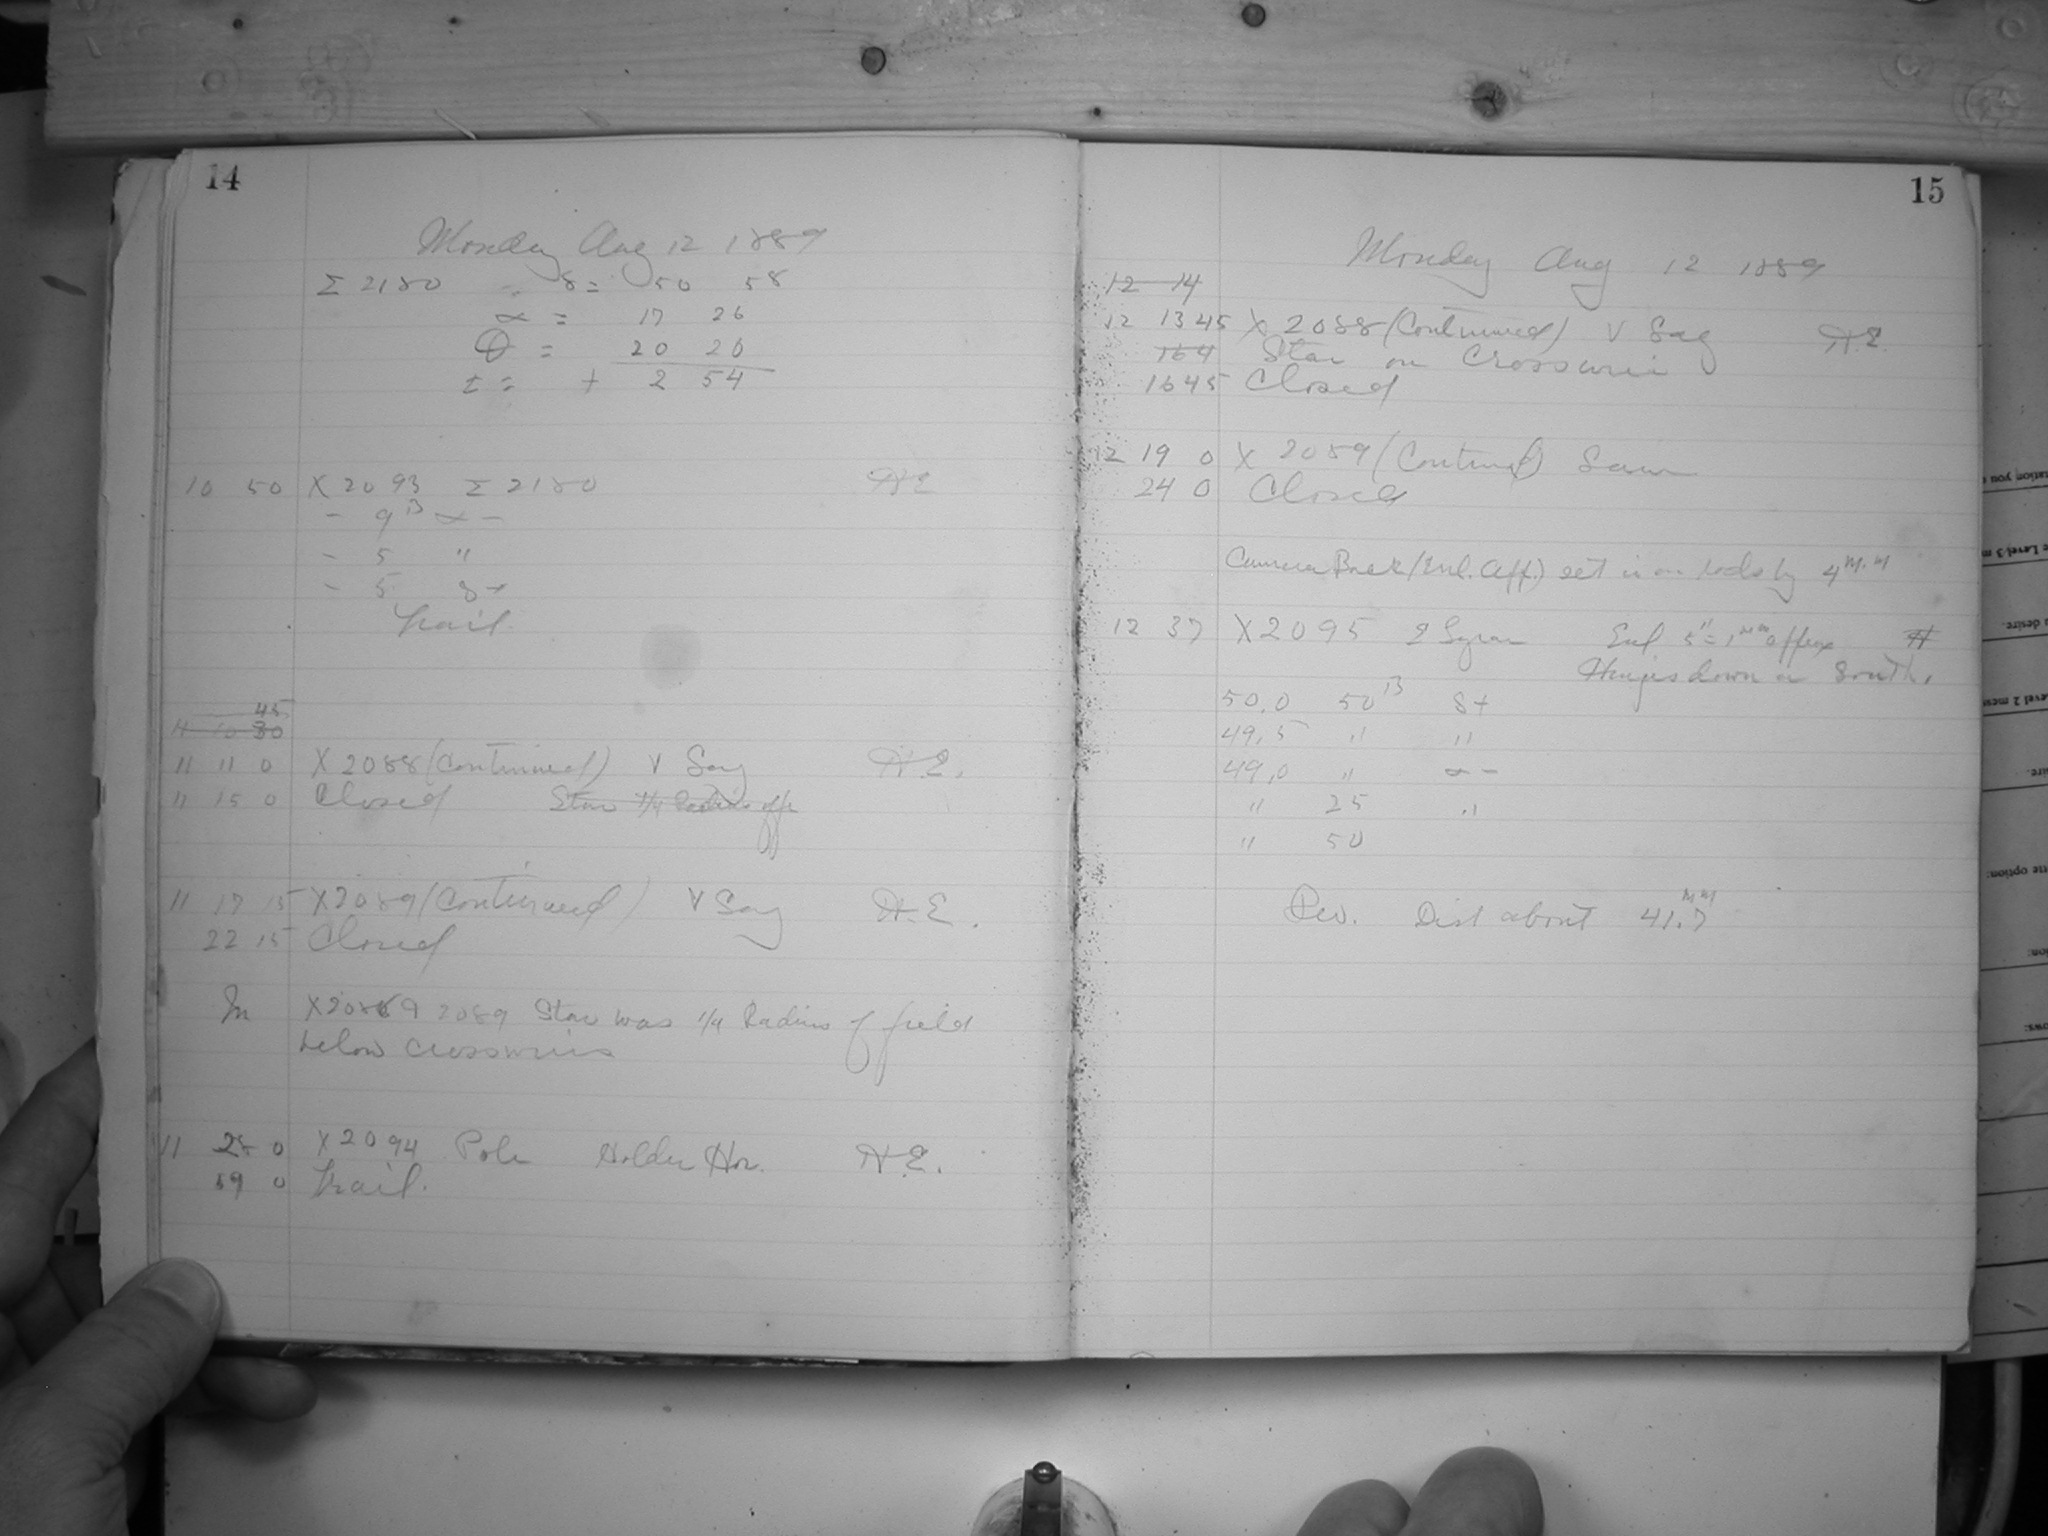 14
Monday Aug 12 1889
Σ 2180 - δ = 50 58
α = 17 26
θ = 20 20
t = + 2 54
10 50 X 2093 Σ 2180 H E
- 9 B α -
- 5 "
- 5 δ +
Trail.
45
11 10 30
11 11 0 X 2088 (Continued) V Sag H. E.
11 15 0 Closed Star 1/4 Radius off
11 17 15 X 2089 (Continued) V Sag H. E.
22 15 Closed
In X 2089 2089 Star was 1/4 Radius of field
below crosswires
11 28 0 X 2094 Pole Holder Hor. H. E.
59 0 Trail.
15
Monday Aug 12 1889
12 14
12 13 45 X 2088 (Continued) V Sag H E
16 4 Star on Crosswire
16 45 Closed
12 19 0 X 2089 (Continued) Same
24 0 Closed
Camera Back (Enl. App.) set in on rods by 4 M.M
12 37 X 2095 Enl 5" = 1 mm approx H
Hinges down on South.
50,0 50 B δ +
49,5 " "
49,0 " α -
" 25 "
" 50
Rev. Dist about 41.7 MM